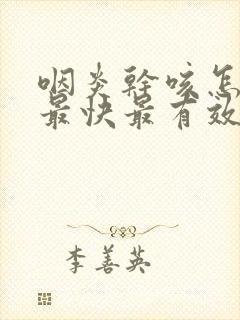 咽炎幹咳怎
最快最有效
李善英